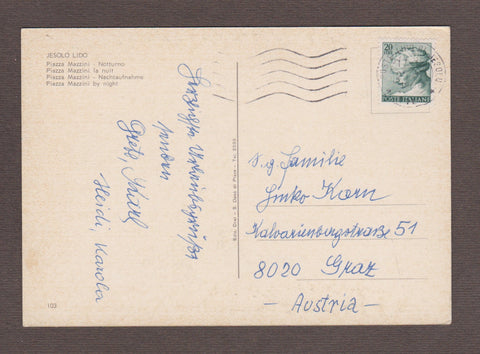 JESOLO LIDO
Piazza Mazzini - Notturno
Piazza Mazzini la nuit
Piazza Mazzini - Nachtaufnahme
Piazza Mazzini by night
Herzliche Urlaubsgrüße
senden
Grete, Karl
Heidi, Karola
103
20
POSTE ITALIANE
Familie
Ginko Korn
Kalvarienbergstraße 51
8020 Graz
- Austria -